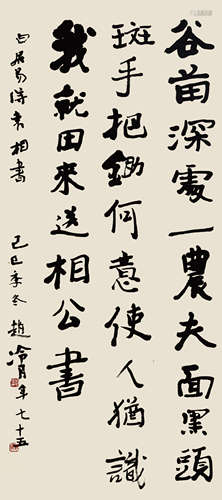 谷苗深處一農夫面黑頭
斑手把鋤何意使人猶識
我就田來送相公書
白居易得袁相書 己巳季冬 趙冷月年七十五